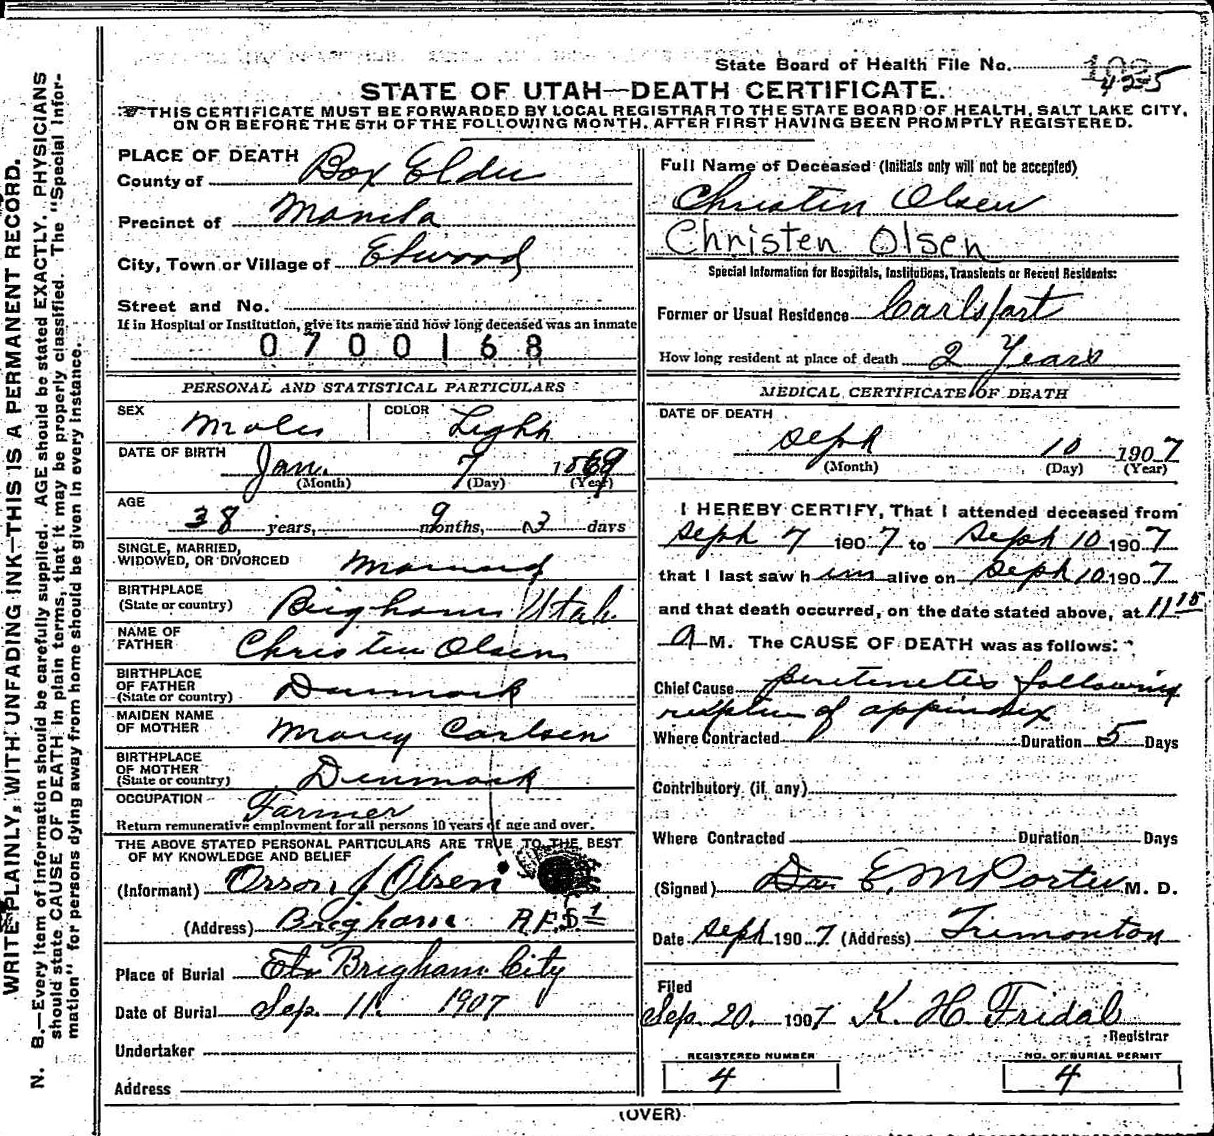 State Board of Health File No. 425
STATE OF UTAH—DEATH CERTIFICATE.
THIS CERTIFICATE MUST BE FORWARDED BY LOCAL REGISTRAR TO THE STATE BOARD OF HEALTH, SALT LAKE CITY,
ON OR BEFORE THE 5TH OF THE FOLLOWING MONTH, AFTER FIRST HAVING BEEN PROMPTLY REGISTERED.
WRITE PLAINLY, WITH UNFADING INK—THIS IS A PERMANENT RECORD.
N. B.—Every item of information should be carefully supplied. AGE should be stated EXACTLY. PHYSICIANS
should state CAUSE OF DEATH in plain terms, that it may be properly classified. The "Special Infor-
mation" for persons dying away from home should be given in every instance.
PLACE OF DEATH
County of Box Elder
Precinct of Manila
City, Town or Village of Elwood
Street and No.
If in Hospital or Institution, give its name and how long deceased was an inmate
0700168
PERSONAL AND STATISTICAL PARTICULARS
SEX Male COLOR Light
DATE OF BIRTH Jan. 7 1869
(Month) (Day) (Year)
AGE 38 years, 9 months, 3 days
SINGLE, MARRIED,
WIDOWED, OR DIVORCED Married
BIRTHPLACE
(State or country) Brigham Utah
NAME OF
FATHER Christen Olsen
BIRTHPLACE
OF FATHER
(State or country) Denmark
MAIDEN NAME
OF MOTHER Mary Carlsen
BIRTHPLACE
OF MOTHER
(State or country) Denmark
OCCUPATION Farmer
Return remunerative employment for all persons 10 years of age and over.
THE ABOVE STATED PERSONAL PARTICULARS ARE TRUE TO THE BEST
OF MY KNOWLEDGE AND BELIEF
(Informant) Orson J Olsen
(Address) Brigham R.F.D. 1
Place of Burial Brigham City
Date of Burial Sep. 11. 1907
Undertaker
Address
Full Name of Deceased (Initials only will not be accepted)
Christen Olsen
Christen Olsen
Special Information for Hospitals, Institutions, Transients or Recent Residents:
Former or Usual Residence Carlsfart
How long resident at place of death 2 Years
MEDICAL CERTIFICATE OF DEATH
DATE OF DEATH
Seph 10 1907
(Month) (Day) (Year)
I HEREBY CERTIFY, That I attended deceased from
Seph 7 1907 to Seph 10 1907
that I last saw him alive on Seph 10 1907
and that death occurred, on the date stated above, at 11 15
A M. The CAUSE OF DEATH was as follows:
Chief Cause peritenetis following
rupture of appindix
Where Contracted Duration 5 Days
Contributory (if any)
Where Contracted Duration Days
(Signed) Dr. E. M Porter M. D.
Date Seph 1907 (Address) Tremonton
Filed
Sep. 20. 1907 K. H Fridal
Registrar
REGISTERED NUMBER
4
NO. OF BURIAL PERMIT
4
(OVER)